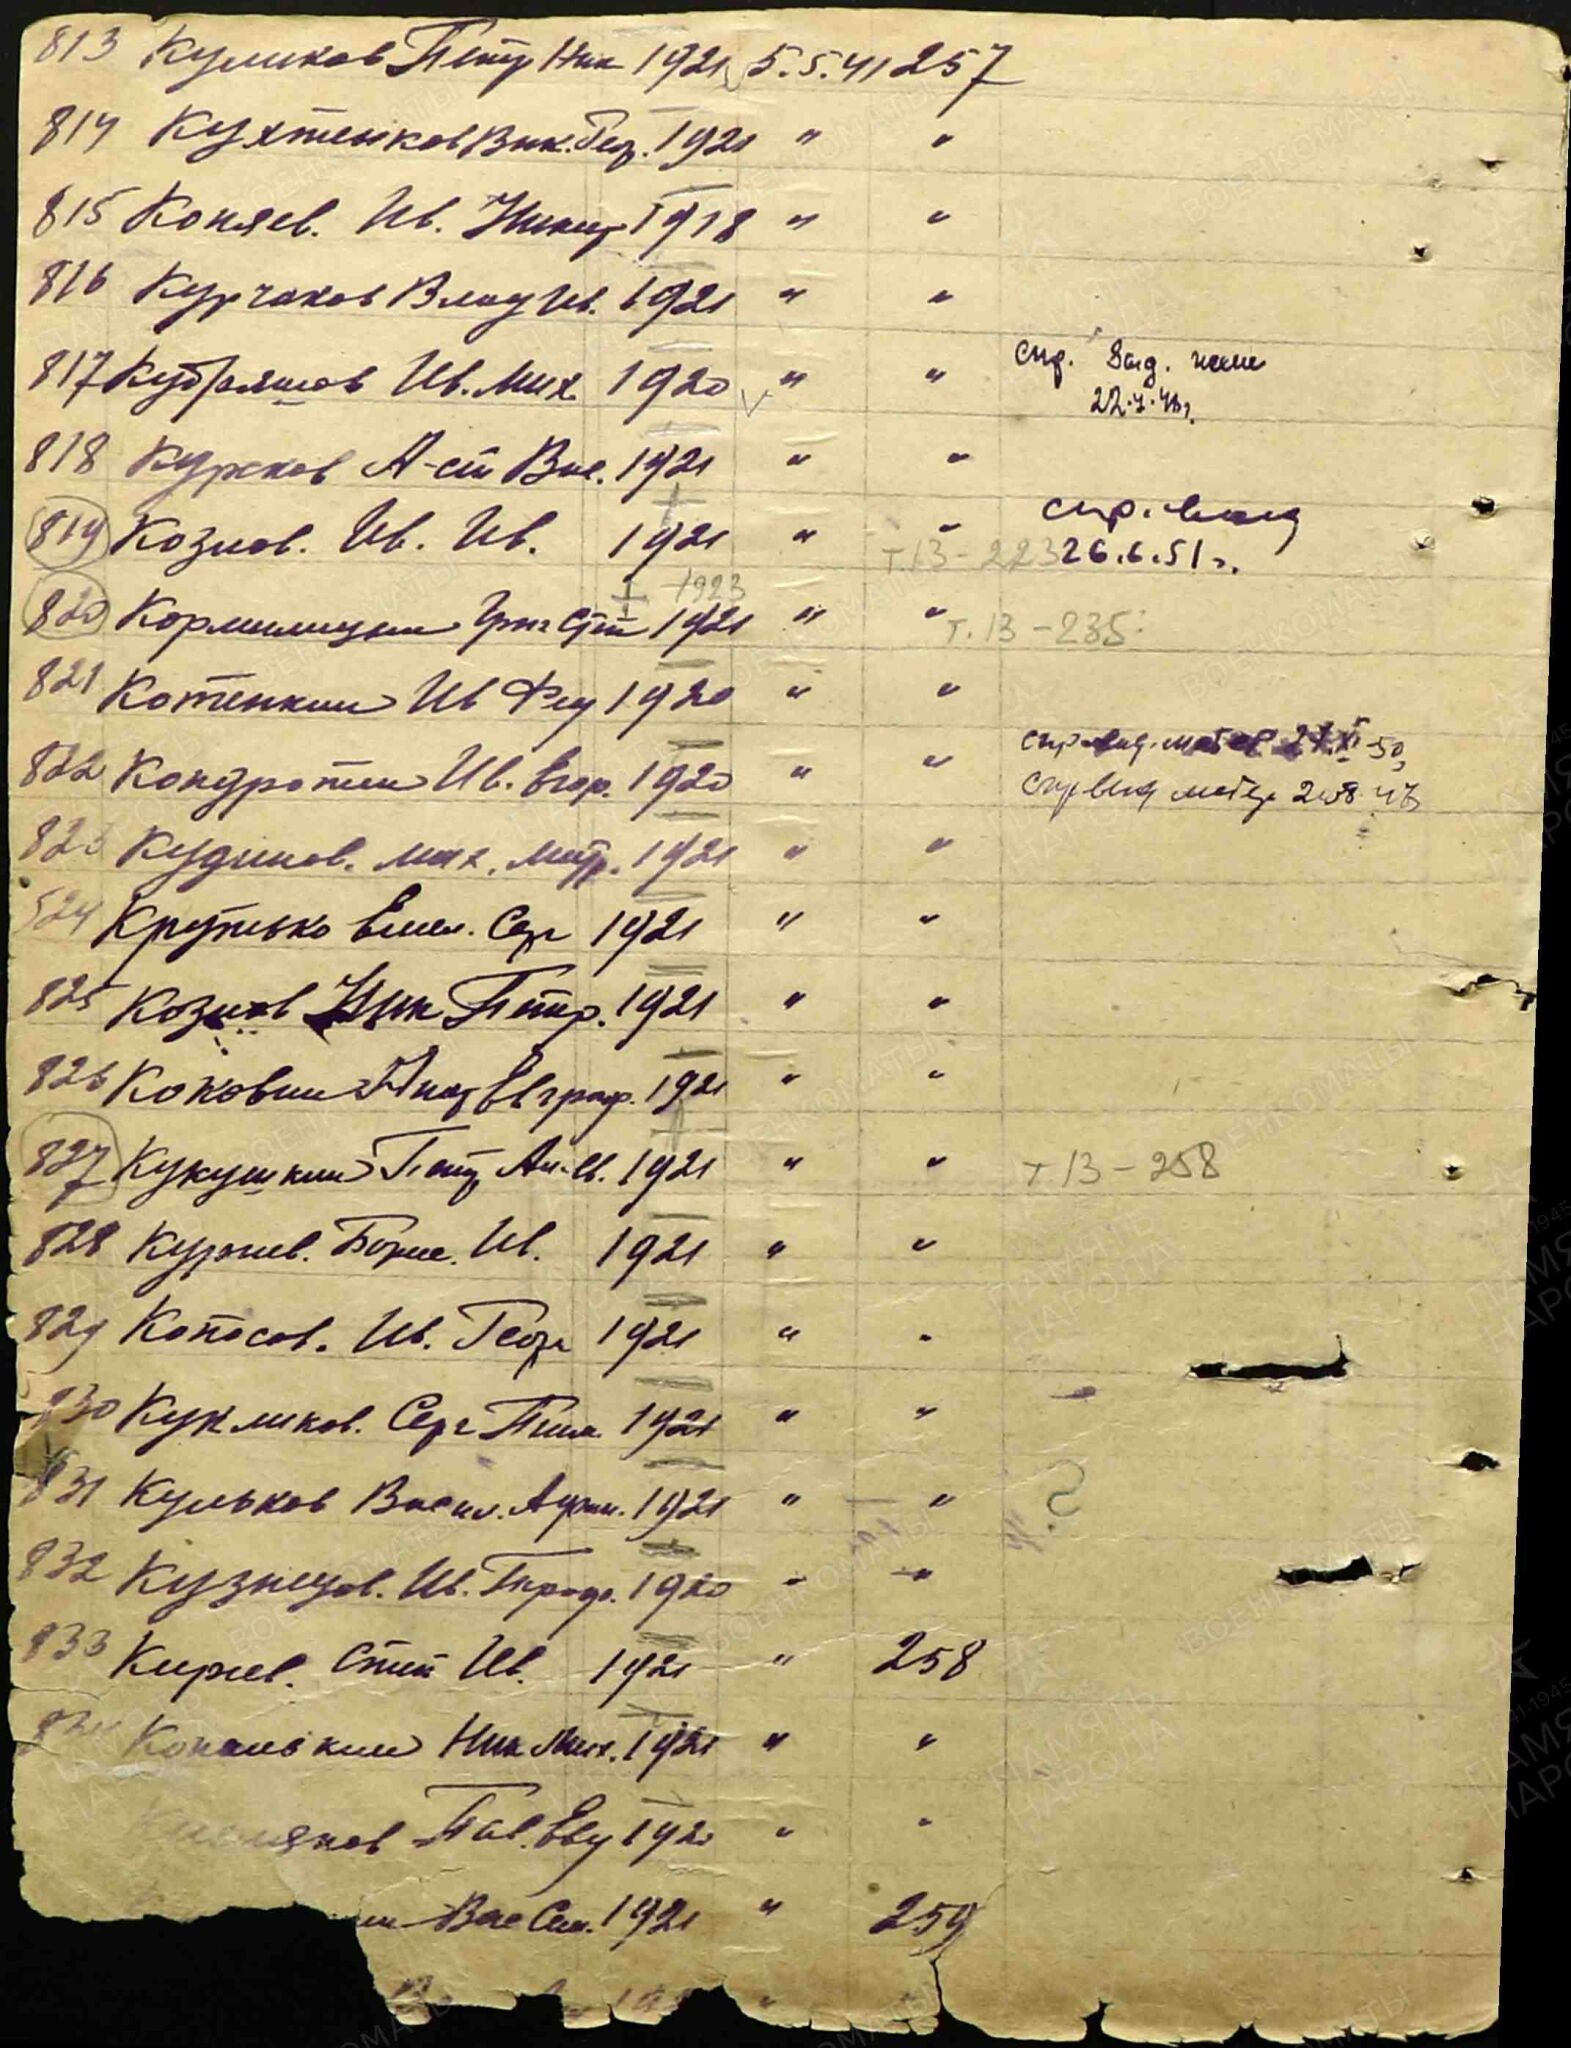 813 Куликов Петр Ник 1921 5.5.41 257
814 Кухтенков Вик. Геор. 1921 " "
815 Коняев. Ив. Никит 1918 " "
816 Курчаков Влад Ив. 1921 " "
817 Кудряшов Ив. Мих. 1920 " "
спр. выд. жене
22.7.46г.
818 Курков А-ей Вас. 1921 " "
819 Козлов. Ив. Ив. 1921 " "
спр. выд
т.13-223 26.6.51г.
1923
820 Кормилицын Григ Степ 1921 " "
т.13-235
821 Котенкин Ив Фед 1920 " "
822 Кондратин Ив. Егор. 1920 " "
спр выд. матер 50
спр выд матер
823 Кудинов. Мих. Митр. 1921 " "
824 Крутько Емел. Сер 1921 " "
825 Козлов Ник Петр. 1921 " "
826 Коковин Евграф. 1921 " "
827 Кукушкин Петр Ал. 1921 " "
т 13-258
828 Борис. Ив. 1921 " "
829 Копосов. Ив. Георг 1921 " "
830 Кукликов. Серг 1921 " "
831 Кульков Васил. 1921 " "
?
832 Кузнецов. Ив. 1920 " "
833 Степ Ив. 1921 " 258
Ник Мих. 1921 " "
Пав. 1920 " "
Вас Сем. 1921 " 259